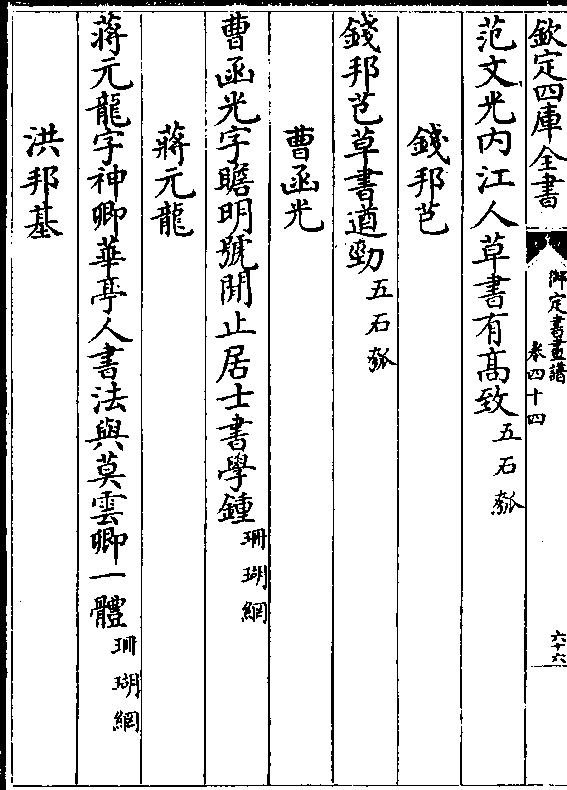 欽定四庫全書
御定書畫譜
卷四十四
六十六
范文光内江人草書有髙致五石瓠
錢邦芑
錢邦芑草書遒勁五石瓠
曹函光
曹函光字瞻明號閒止居士書學鍾珊瑚網
蔣元龍
蔣元龍字神卿華亭人書法與莫雲卿一體珊瑚網
洪邦基